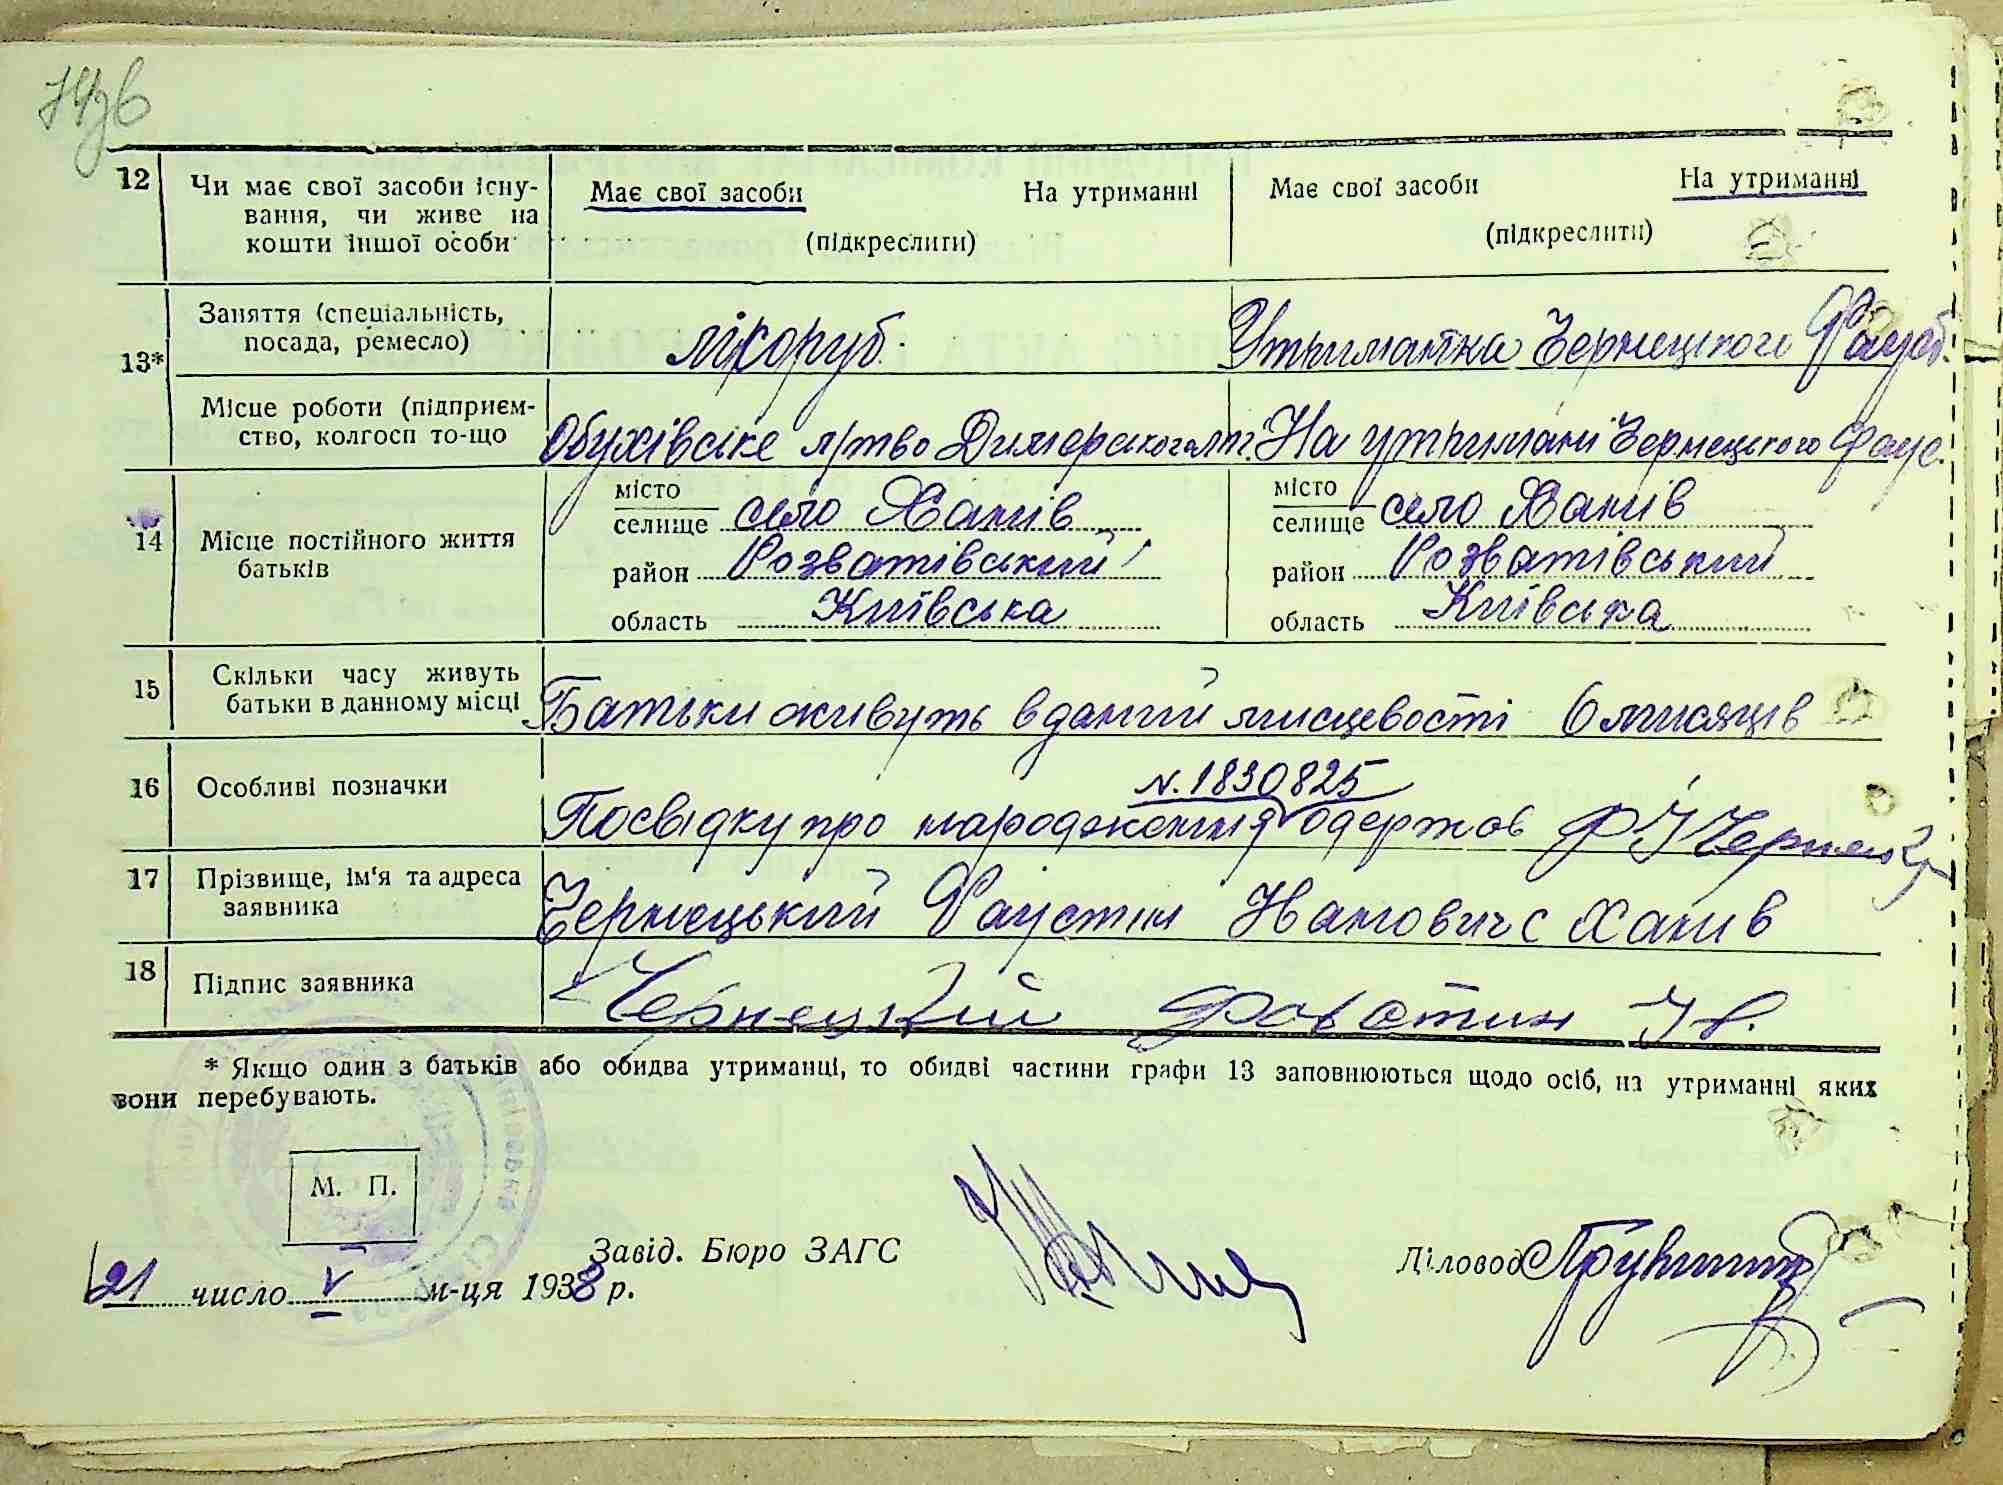 12
Чи має свої засоби існу-
вання, чи живе на
кошти іншої особи
Має свої засоби На утриманні
(підкреслити)
Має свої засоби На утриманні
(підкреслити)
13*
Заняття (спеціальність,
посада, ремесло)
лісоруб.
Утриманка Чернецького Фауст.
Місце роботи (підприєм-
ство, колгосп то-що
Обухівське л/тво Димерського лпг.
На утримані Чернецького Фаус.
14
Місце постійного життя
батьків
місто
селище село Ханів
район Розватівський
область Київська
місто
селище село Ханів
район Розватівський
область Київська
15
Скільки часу живуть
батьки в данному місці
Батьки живуть в даний мисцевості 6 мисяців
16
Особливі позначки
N. 1830825
Посвідку про народження одержав Ф І Чернец
17
Прізвище, ім'я та адреса
заявника
Чернецький Фаустин Иванович с Ханив
18
Підпис заявника
Чернецкий Фавстин Ив.
* Якщо один з батьків або обидва утриманці, то обидві частини графи 13 заповнюються щодо осіб, на утриманні яких
вони перебувають.
М. П.
Завід. Бюро ЗАГС
Діловод
21 число V м-ця 1938 р.